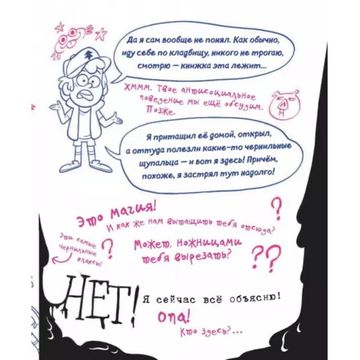 Да я сам вообще не понял. Как обычно,
иду себе по кладбищу, никого не трогаю,
смотрю — книжка эта лежит...
Хммм. Твоё антисоциальное
поведение мы ещё обсудим.
Позже.
Я притащил её домой, открыл,
а оттуда полезли какие-то чернильные
щупальца — и вот я здесь! Причём,
похоже, я застрял тут надолго!
Это магия!
И как же нам вытащить тебя отсюда?
?
Эти самые
чернильные
кляксы!
Может, ножницами
тебя вырезать?
??
НЕТ!
Я сейчас всё объясню!
Опа!
Кто здесь?...